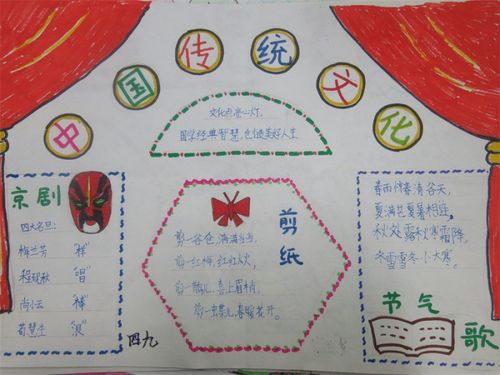 中国传统文化
文化点亮心灯,
国学经典智慧,创造美好人生
京剧
四大名旦:
梅兰芳 "样"
程砚秋 "唱"
尚小云 "棒"
荀慧生 "浪"
剪纸
剪一谷仓,满满当当,
剪一红梅,红红火火,
剪一
喜上眉梢,
剪一
春暖花开。
春雨惊春清谷天,
夏满芒夏暑相连,
秋处露秋寒霜降,
冬雪雪冬小大寒。
节气
歌
四九